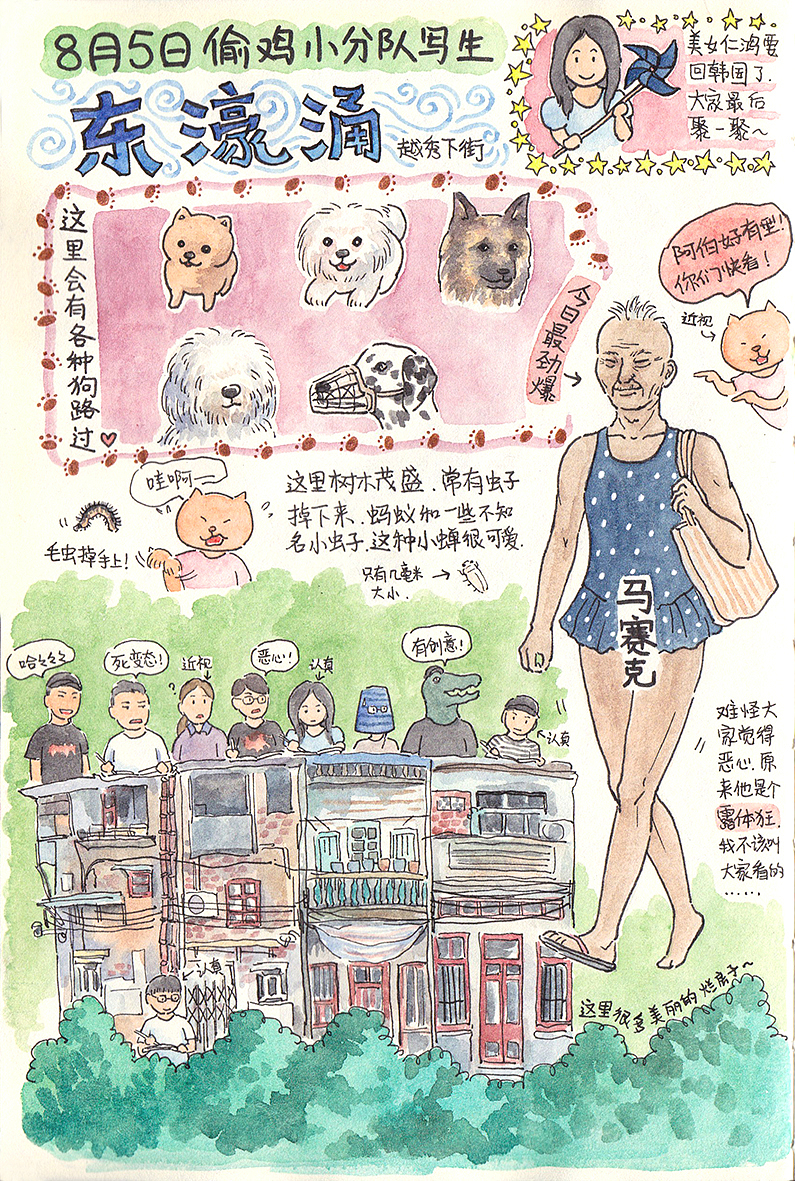 8月5日偷鸡小分队写生
东濠涌
越秀下街
美女仁鸿要
回韩国了.
大家最后
聚一聚~
这里会有各种狗路过♡
今日最劲爆
阿伯好有型!
你们快看!
近视
哇啊—
毛虫掉手上!
这里树木茂盛.常有虫子
掉下来.蚂蚁和一些不知
名小虫子.这种小蝉很可爱.
只有几毫米
大小.
马赛克
哈哈哈哈
死变态!
近视
?
恶心!
认真
有创意!
认真
难怪大
家觉得
恶心.原
来他是个
露体狂.
我不该叫
大家看的
......
认真
这里很多美丽的烂房子~